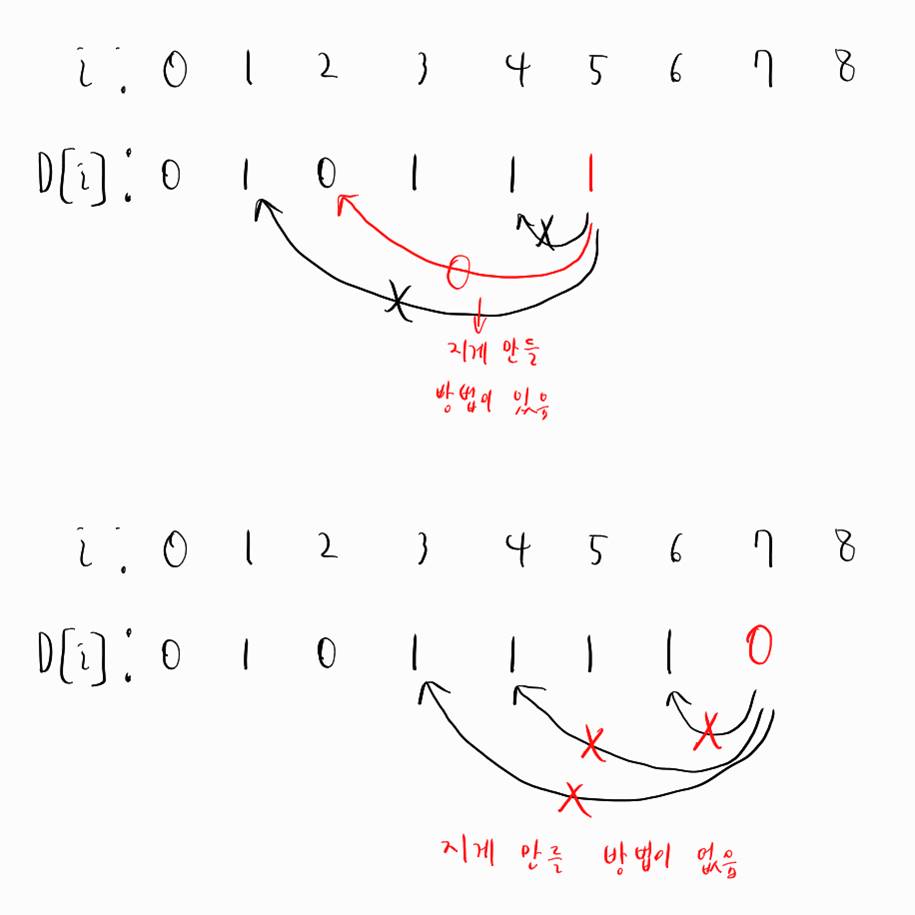 i : 0 1 2 3 4 5 6 7 8
D[i] : 0 1 0 1 1 1
X
O
X
지게 만들
방법이 있음
i : 0 1 2 3 4 5 6 7 8
D[i] : 0 1 0 1 1 1 1 0
X X
X
지게 만들 방법이 없음